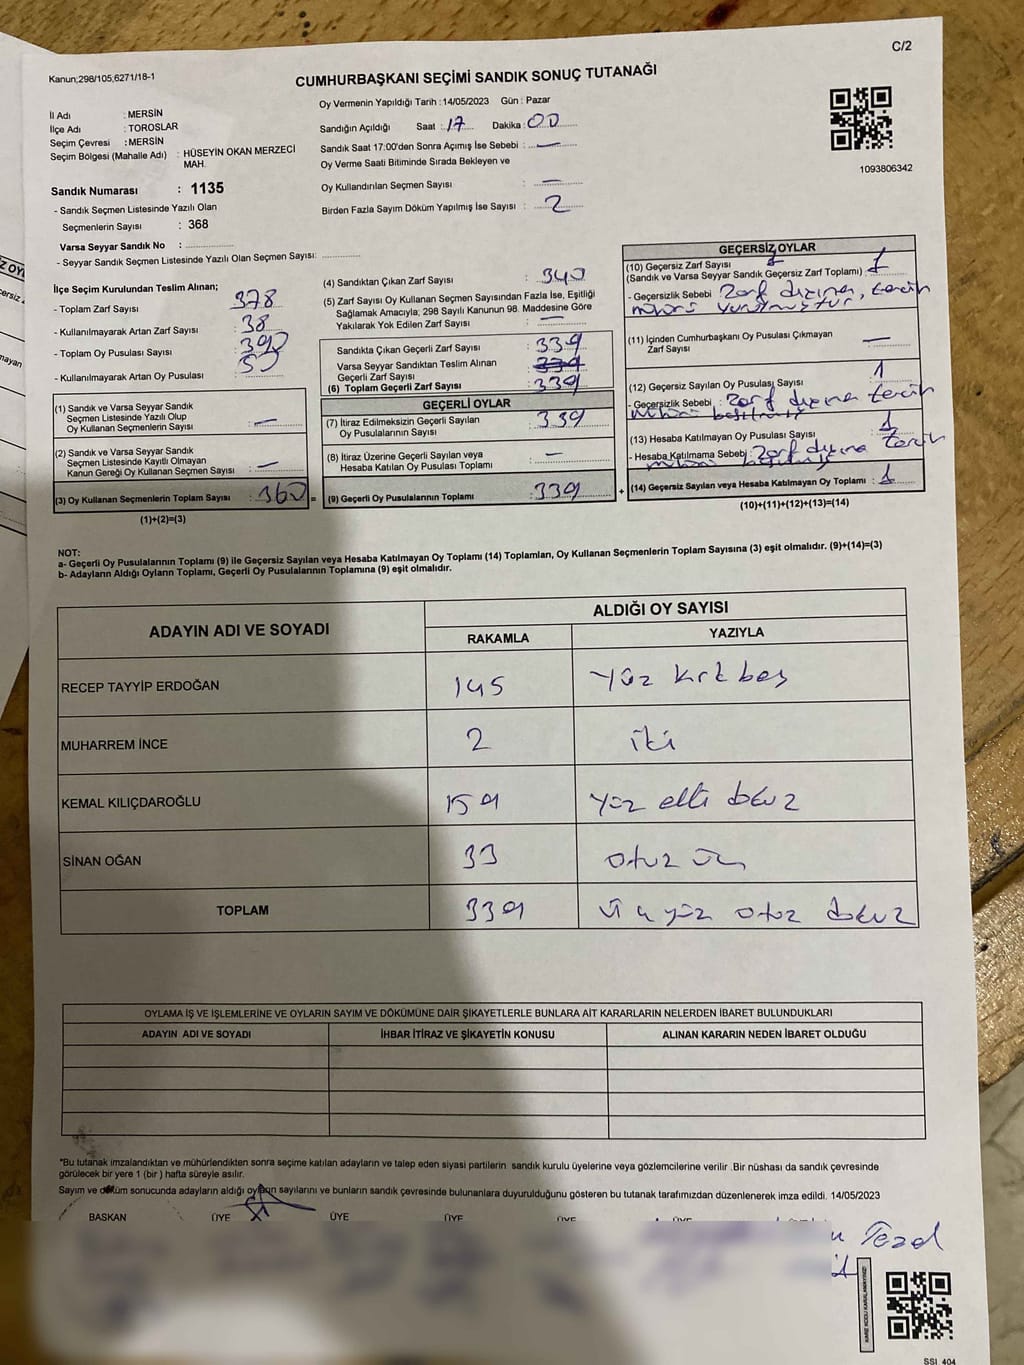 C/2
Kanun;298/105;6271/18-1
CUMHURBAŞKANI SEÇİMİ SANDIK SONUÇ TUTANAĞI
İl Adı : MERSİN
İlçe Adı : TOROSLAR
Seçim Çevresi : MERSİN
Seçim Bölgesi (Mahalle Adı) : HÜSEYİN OKAN MERZECİ
MAH.
Sandık Numarası : 1135
- Sandık Seçmen Listesinde Yazılı Olan
Seçmenlerin Sayısı : 368
Varsa Seyyar Sandık No :
- Seyyar Sandık Seçmen Listesinde Yazılı Olan Seçmen Sayısı:
Oy Vermenin Yapıldığı Tarih : 14/05/2023 Gün : Pazar
Sandığın Açıldığı Saat : 17 Dakika : 00
Sandık Saat 17:00'den Sonra Açımış İse Sebebi : —
Oy Verme Saati Bitiminde Sırada Bekleyen ve
Oy Kullandırılan Seçmen Sayısı : —
Birden Fazla Sayım Döküm Yapılmış İse Sayısı : 2
1093806342
İlçe Seçim Kurulundan Teslim Alınan;
- Toplam Zarf Sayısı : 378
- Kullanılmayarak Artan Zarf Sayısı : 38
- Toplam Oy Pusulası Sayısı :
- Kullanılmayarak Artan Oy Pusulası :
(1) Sandık ve Varsa Seyyar Sandık
Seçmen Listesinde Yazılı Olup
Oy Kullanan Seçmenlerin Sayısı : —
(2) Sandık ve Varsa Seyyar Sandık
Seçmen Listesinde Kayıtlı Olmayan
Kanun Gereği Oy Kullanan Seçmen Sayısı : —
(3) Oy Kullanan Seçmenlerin Toplam Sayısı : 360 =
(1)+(2)=(3)
(4) Sandıktan Çıkan Zarf Sayısı : 340
(5) Zarf Sayısı Oy Kullanan Seçmen Sayısından Fazla İse, Eşitliği
Sağlamak Amacıyla; 298 Sayılı Kanunun 98. Maddesine Göre
Yakılarak Yok Edilen Zarf Sayısı : —
Sandıkta Çıkan Geçerli Zarf Sayısı : 339
Varsa Seyyar Sandıktan Teslim Alınan
Geçerli Zarf Sayısı : 339
(6) Toplam Geçerli Zarf Sayısı : 339
GEÇERLİ OYLAR
(7) İtiraz Edilmeksizin Geçerli Sayılan
Oy Pusulalarının Sayısı : 339
(8) İtiraz Üzerine Geçerli Sayılan veya
Hesaba Katılan Oy Pusulası Toplamı : —
(9) Geçerli Oy Pusulalarının Toplamı : 339 +
GEÇERSİZ OYLAR
(10) Geçersiz Zarf Sayısı
(Sandık ve Varsa Seyyar Sandık Geçersiz Zarf Toplamı) : 1
- Geçersizlik Sebebi : Zarf dışına, tercih
mührü
(11) İçinden Cumhurbaşkanı Oy Pusulası Çıkmayan
Zarf Sayısı : —
(12) Geçersiz Sayılan Oy Pusulası Sayısı : 1
- Geçersizlik Sebebi : Zarf dışına tercih
(13) Hesaba Katılmayan Oy Pusulası Sayısı : 1
- Hesaba Katılmama Sebebi : Zarf dışına tercih
(14) Geçersiz Sayılan veya Hesaba Katılmayan Oy Toplamı : 1
(10)+(11)+(12)+(13)=(14)
NOT:
a- Geçerli Oy Pusulalarının Toplamı (9) ile Geçersiz Sayılan veya Hesaba Katılmayan Oy Toplamı (14) Toplamları, Oy Kullanan Seçmenlerin Toplam Sayısına (3) eşit olmalıdır. (9)+(14)=(3)
b- Adayların Aldığı Oyların Toplamı, Geçerli Oy Pusulalarının Toplamına (9) eşit olmalıdır.
ADAYIN ADI VE SOYADI
ALDIĞI OY SAYISI
RAKAMLA YAZIYLA
RECEP TAYYİP ERDOĞAN 145 Yüz kırk beş
MUHARREM İNCE 2 iki
KEMAL KILIÇDAROĞLU 159 Yüz elli dokuz
SİNAN OĞAN 33 otuz üç
TOPLAM 339 Üç yüz otuz dokuz
OYLAMA İŞ VE İŞLEMLERİNE VE OYLARIN SAYIM VE DÖKÜMÜNE DAİR ŞİKAYETLERLE BUNLARA AİT KARARLARIN NELERDEN İBARET BULUNDUKLARI
ADAYIN ADI VE SOYADI İHBAR İTİRAZ VE ŞİKAYETİN KONUSU ALINAN KARARIN NEDEN İBARET OLDUĞU
*Bu tutanak imzalandıktan ve mühürlendikten sonra seçime katılan adayların ve talep eden siyasi partilerin sandık kurulu üyelerine veya gözlemcilerine verilir .Bir nüshası da sandık çevresinde
görülecek bir yere 1 (bir ) hafta süreyle asılır.
Sayım ve döküm sonucunda adayların aldığı oyların sayılarını ve bunların sandık çevresinde bulunanlara duyurulduğunu gösteren bu tutanak tarafımızdan düzenlenerek imza edildi. 14/05/2023
BAŞKAN ÜYE ÜYE ÜYE ÜYE ÜYE
KARE KODU KARALAMAYINIZ!
SSI 404